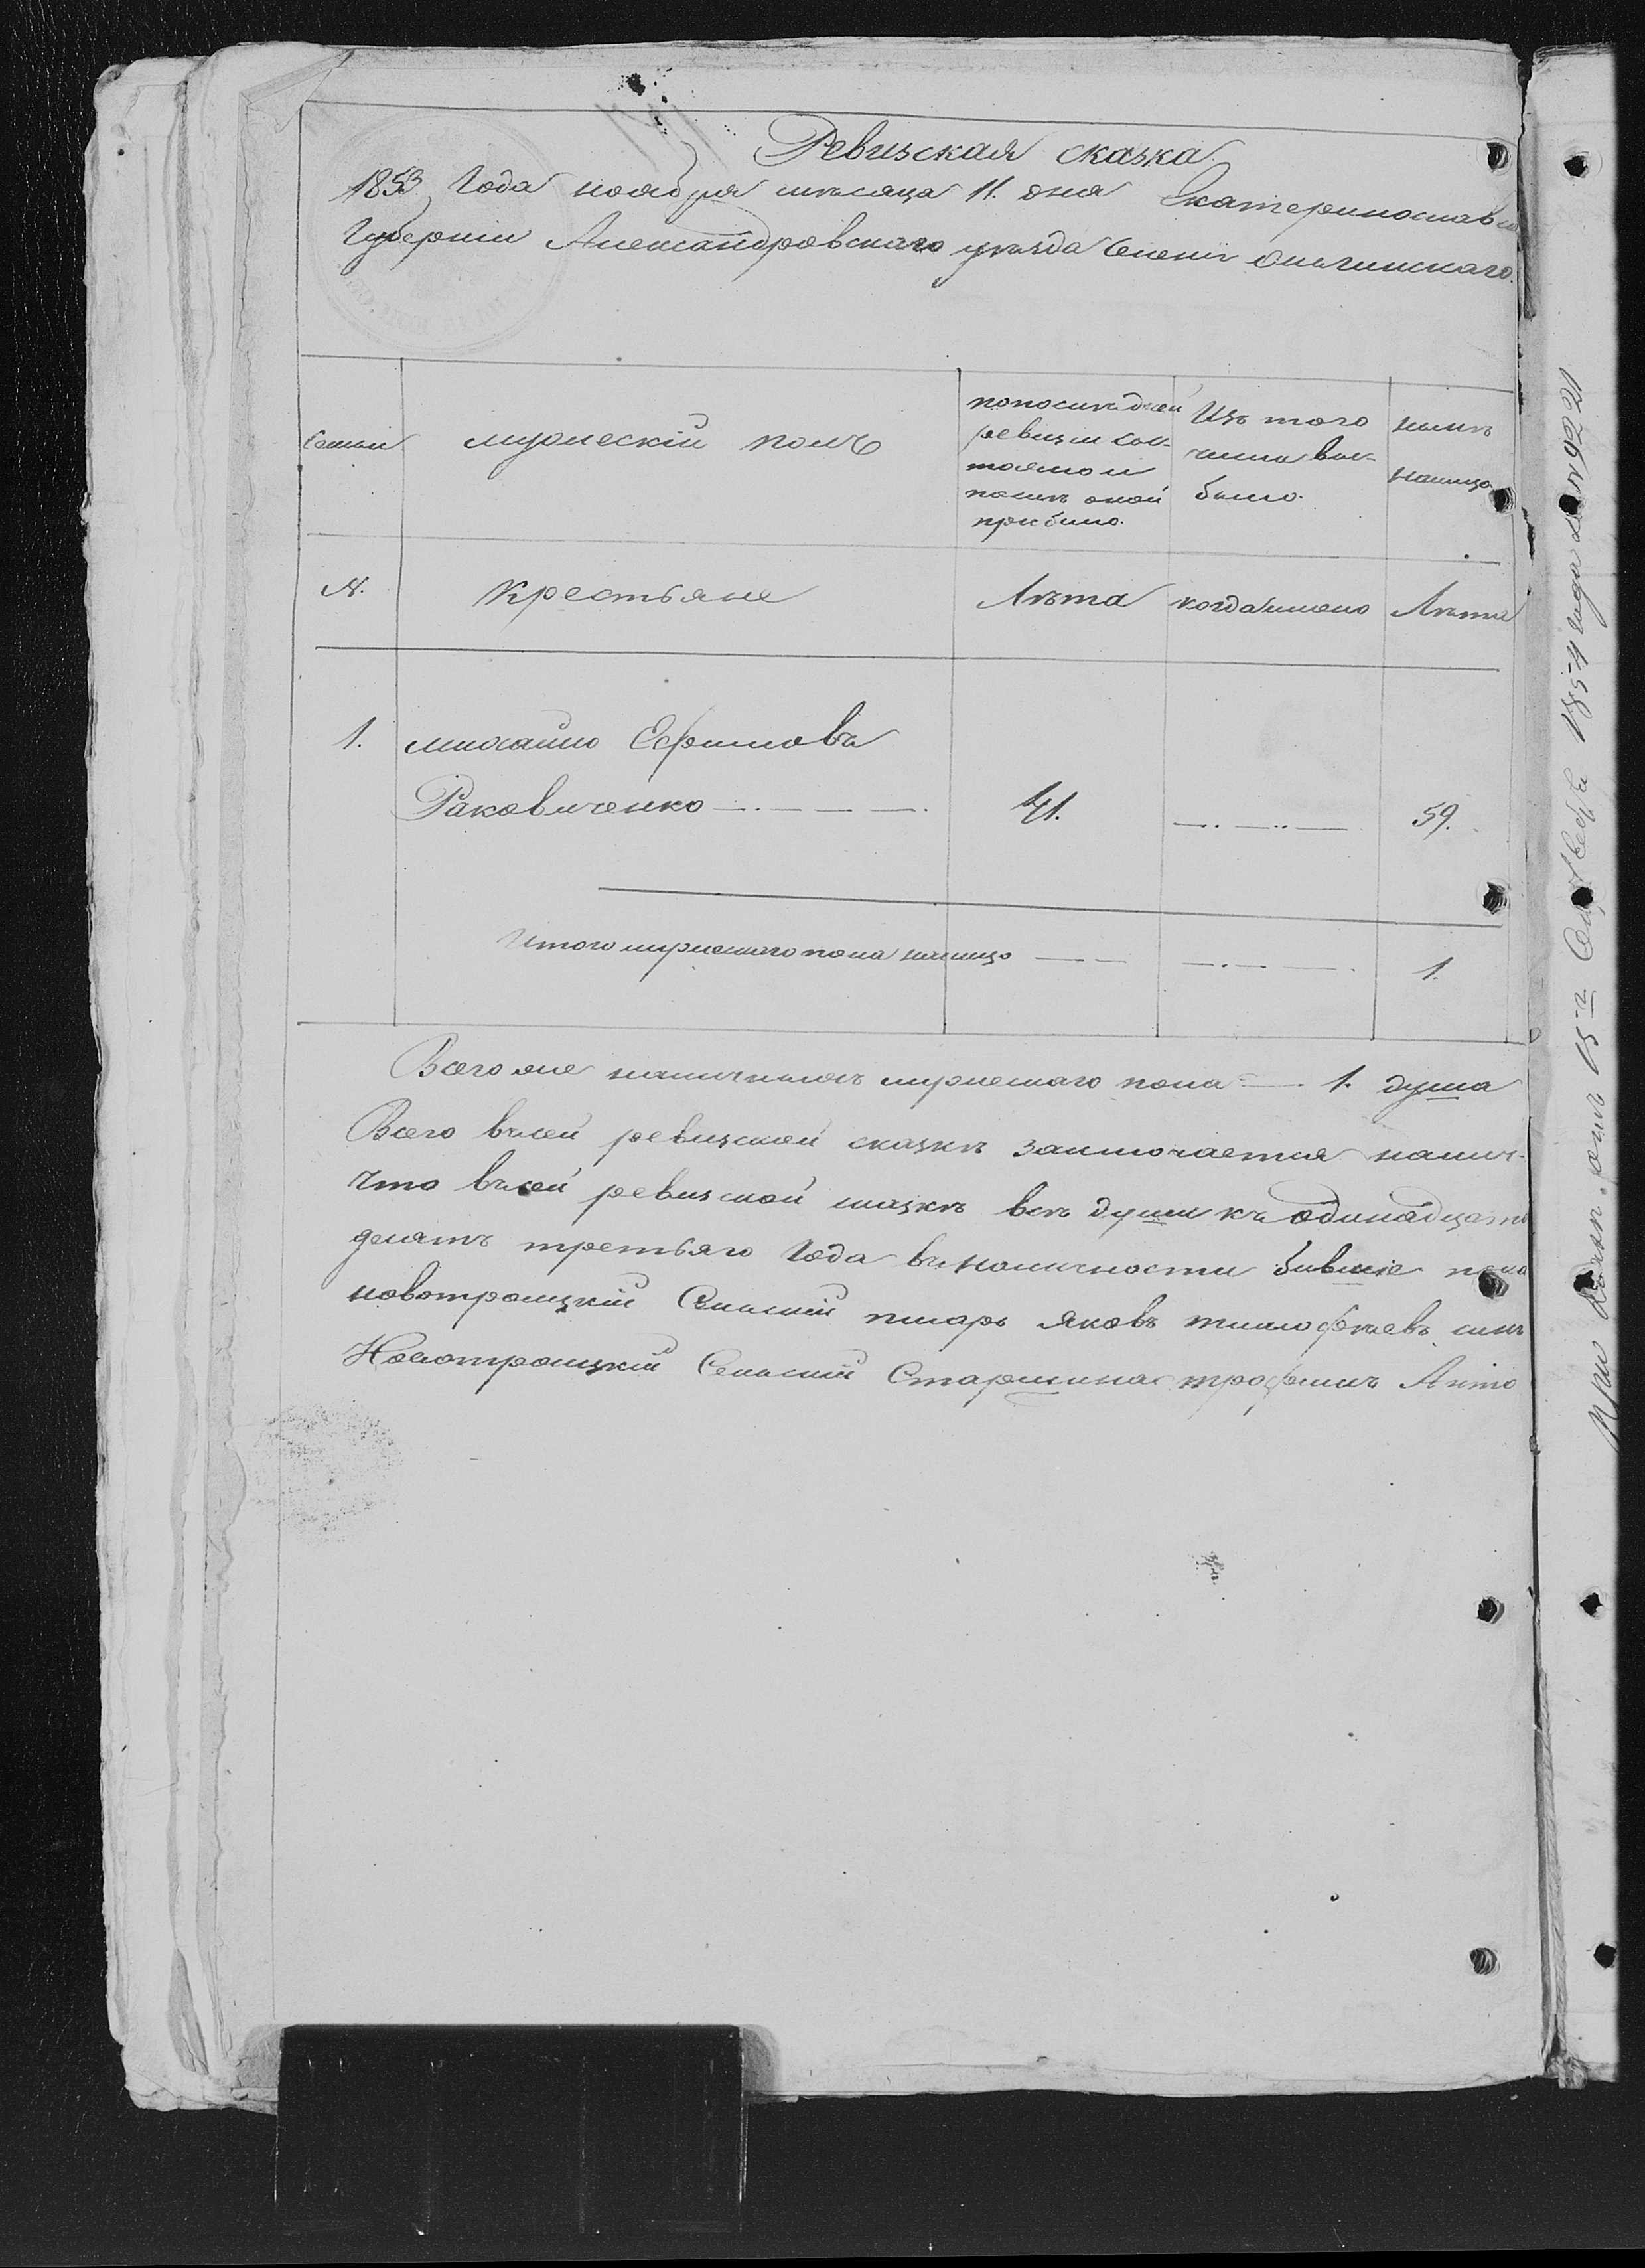 Ревизская сказка
1853 Года ноября месяца 11. дня Екатеринослав
Губернии Александровскаго уезда Селенія Ольгинскаго.
Семьи
мужескій полъ
попоследней
ревизіи сос-
тояло и
после оной
прибыло.
Изъ того
числа вы-
было.
ныне
налицо
№.
Крестьяне
Лѣта
когда именно
Лѣта
1.
михайло Ефимовъ
Раковиченко
41.
59.
Итого мужескаго пола налицо
1.
Всего же наличныхъ мужескаго пола 1. душа
Всего въ сей ревизской сказкѣ заключается налич-
что въ сей ревизской сказкѣ всѣ души къ одинадцато
десятъ третьяго Года въ наличности бывшіе
новотроицкій Сельскій писарь яковъ тимофеевъ сынъ
Новотроицкій Сельскій Старшина трофимъ Анто
При 15 1854 года № 9221